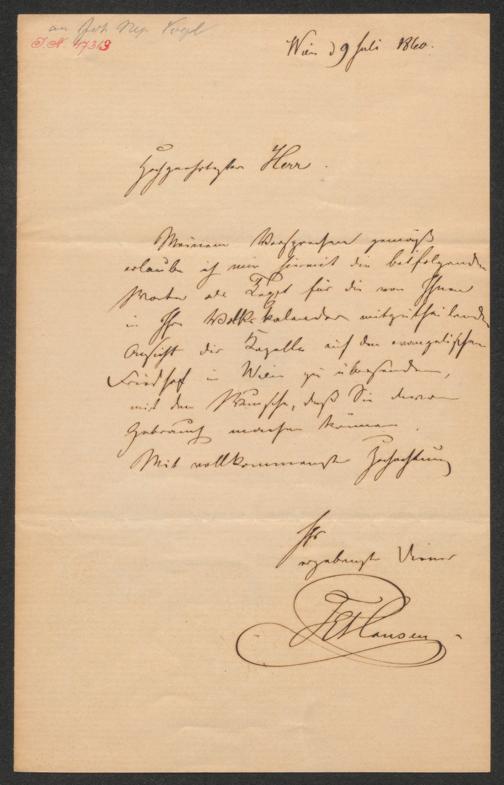 an Joh Nep Vogl
I.N. 47363
Wien d 9 Juli 1860.
Hochgeehrtester Herr.
Meinem Versprechen gemäß
erlaube ich mir hiemit die beifolgenden
Worte als Text für die von Ihnen
in Ihr Volkskalender mitzutheilende
Ansicht der Kapelle auf den evangelischen
Friedhof in Wien zu übersenden,
mit dem Wunsche, daß Sie davon
Gebrauch machen können.
Mit vollkommenster Hochachtung
Ihr
ergebenster Diener
Hansen